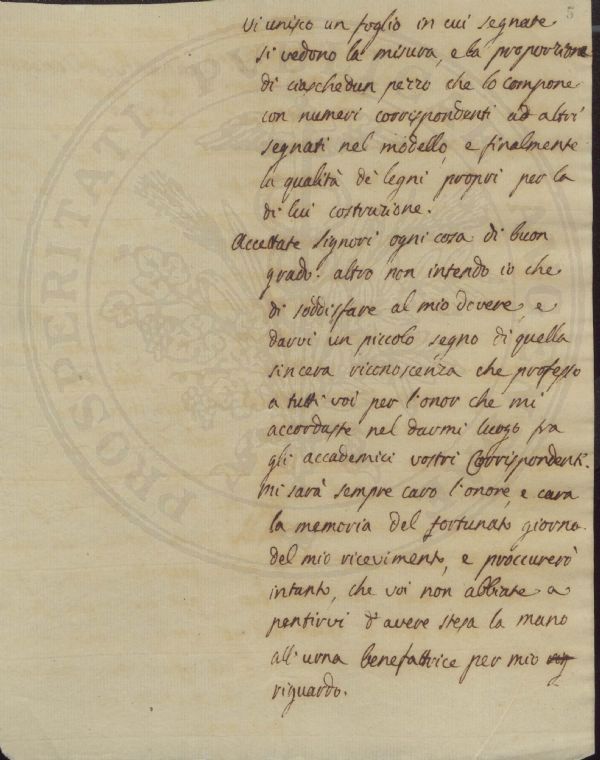 5
Vi unisco un foglio in cui segnate
si vedono la misura, e la proporzione
di ciaschedun pezzo che lo compone
con numeri corrispondenti ad altri
segnati nel modello, e finalmente
la qualità de' legni propri per la
di lui costruzione.
Accettate Signori ogni cosa di buon
grado: altro non intendo io che
di soddisfare al mio dovere, e
darvi un piccolo segno di quella
sincera riconoscenza che professo
a tutti voi per l'onor che mi
accordaste nel darmi luogo fra
gli accademici vostri Corrispondenti.
Mi sarà sempre caro l'onore, e cara
la memoria del fortunato giorno
del mio ricevimento, e proccurerò
intanto, che voi non abbiate a
pentirvi d'avere stesa la mano
all'urna benefattrice per mio
riguardo.
PROSPERITATI PU